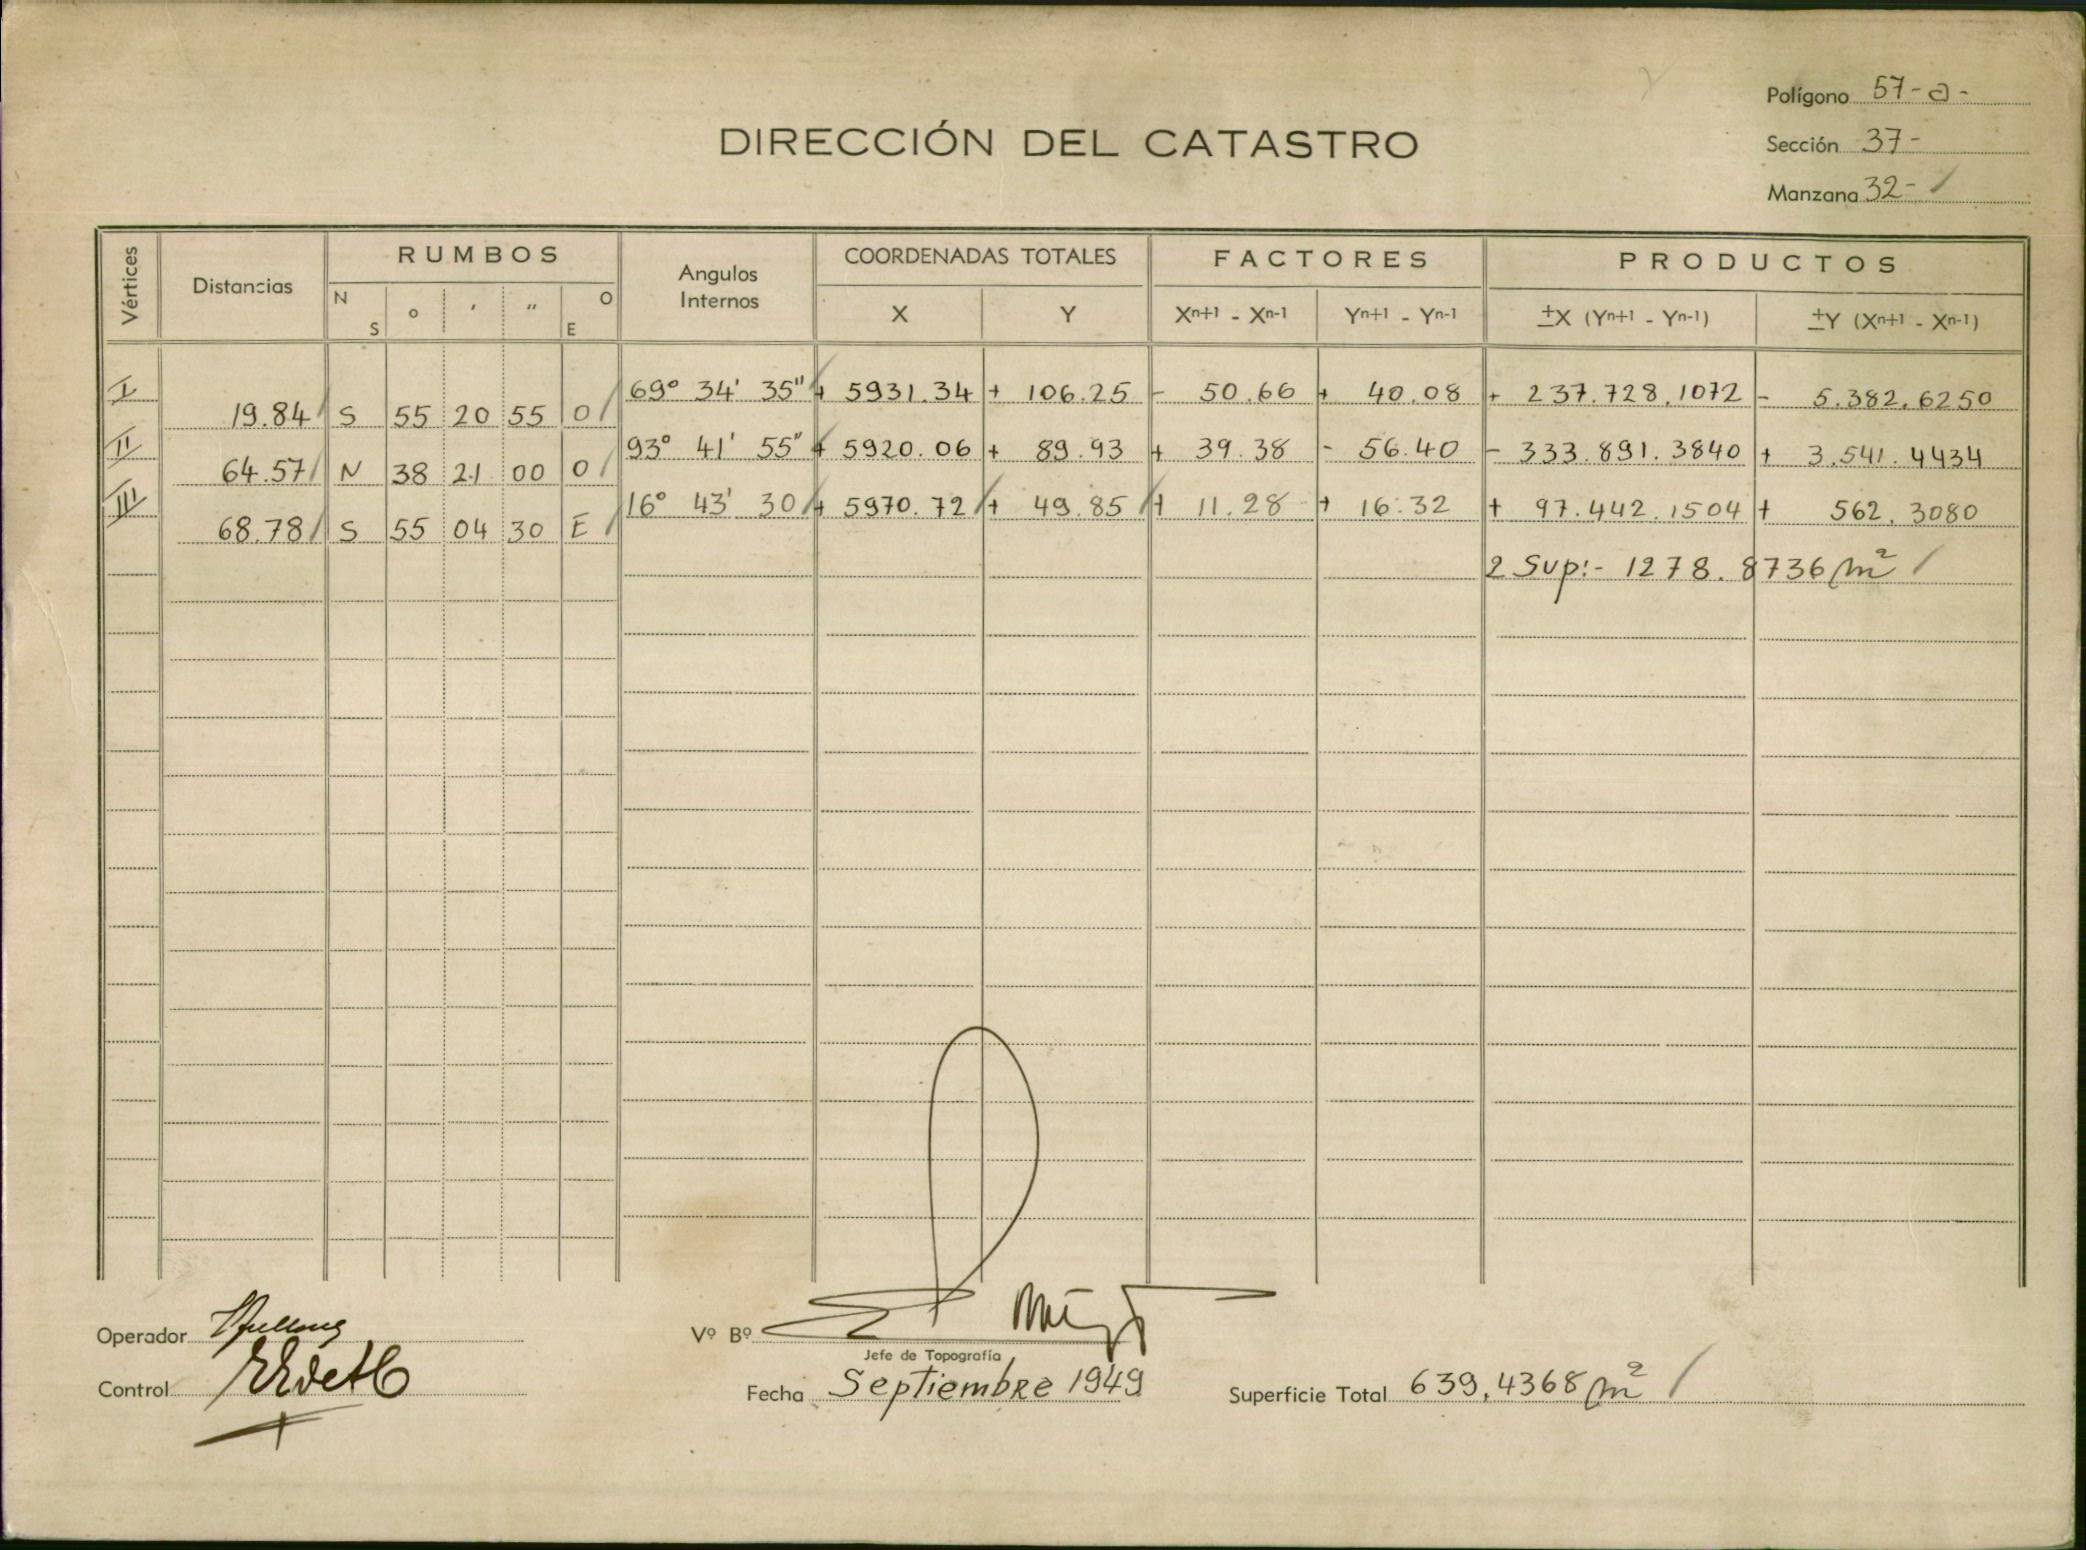 Polígono 57-a-
DIRECCIÓN DEL CATASTRO
Sección 37-
Manzana 32-
Vértices Distancias RUMBOS Angulos Internos COORDENADAS TOTALES FACTORES PRODUCTOS
N S ° ′ ″ O E X Y Xⁿ⁺¹ - Xⁿ⁻¹ Yⁿ⁺¹ - Yⁿ⁻¹ ±X (Yⁿ⁺¹ - Yⁿ⁻¹) ±Y (Xⁿ⁺¹ - Xⁿ⁻¹)
I 69° 34' 35" + 5931.34 + 106.25 - 50.66 + 40.08 + 237.728.1072 - 5.382.6250
19.84 S 55 20 55 O
II 93° 41' 55" + 5920.06 + 89.93 + 39.38 - 56.40 - 333.891.3840 + 3.541.4434
64.57 N 38 21 00 O
III 16° 43' 30 + 5970.72 + 49.85 + 11.28 + 16.32 + 97.442.1504 + 562.3080
68.78 S 55 04 30 E
2 Sup:- 1278.8736 m²
Operador
Vº Bº
Jefe de Topografía
Control
Fecha Septiembre 1949
Superficie Total 639,4368 m²